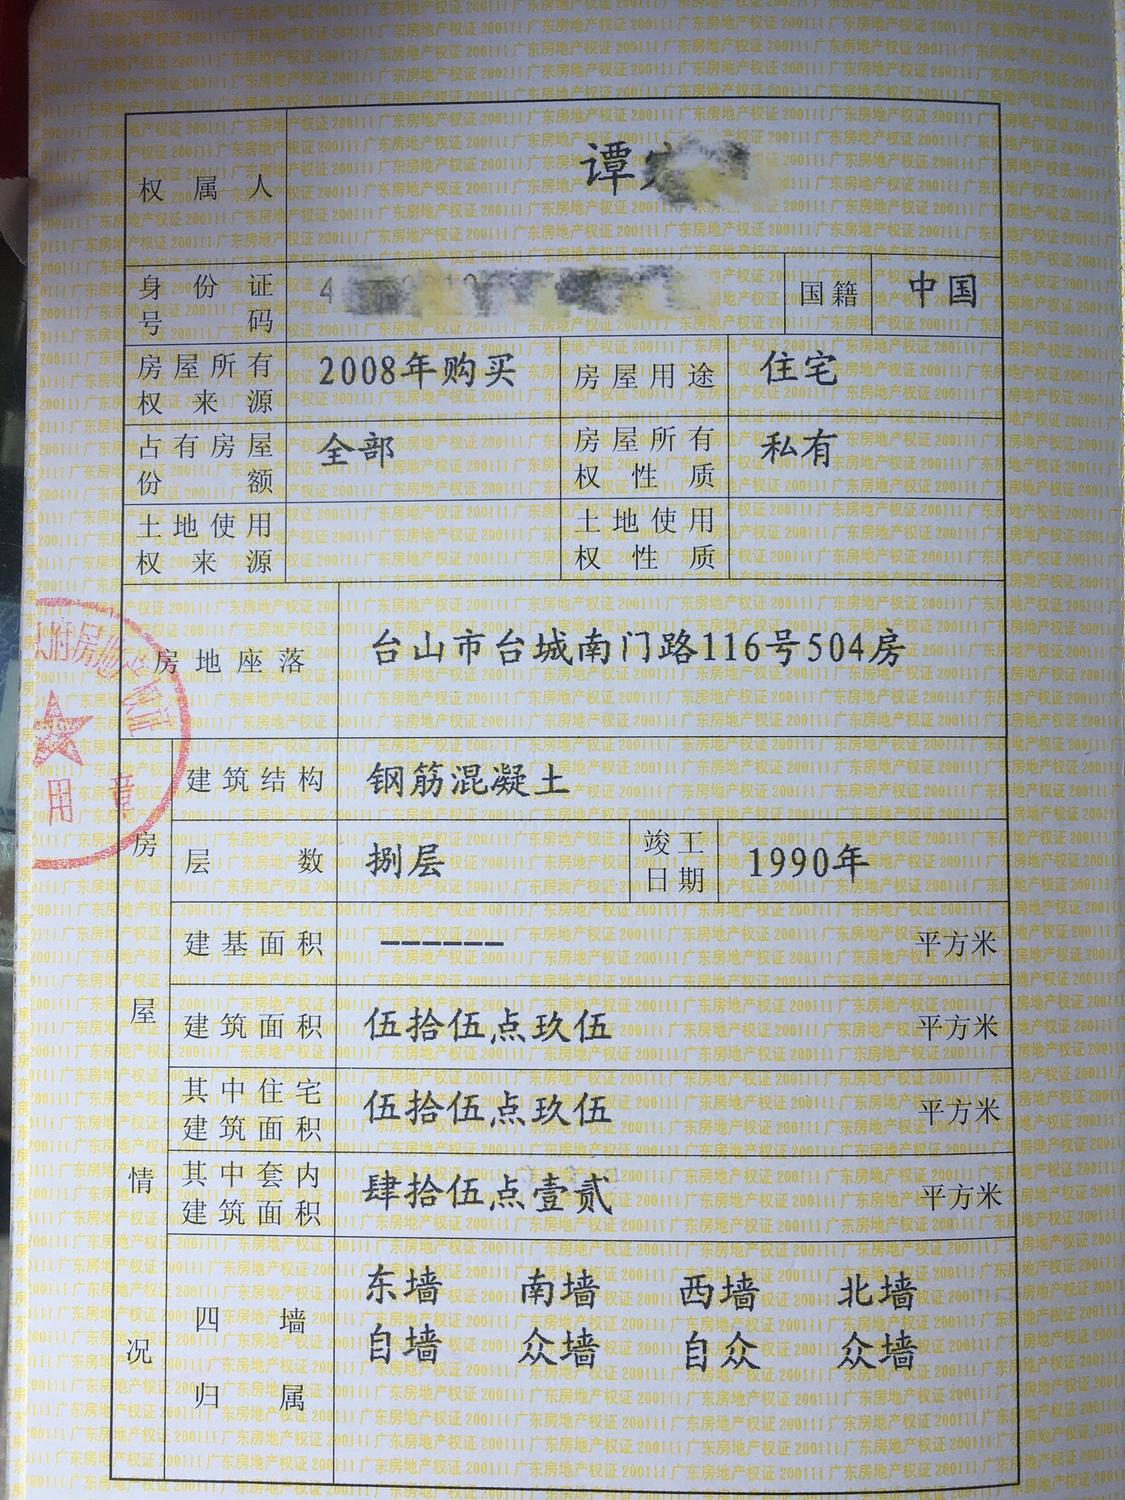 权属人 谭
身份证号码 4 国籍 中国
房屋所有权来源 2008年购买 房屋用途 住宅
占有房屋份额 全部 房屋所有权性质 私有
土地使用权来源 土地使用权性质
房地座落 台山市台城南门路116号504房
房屋情况
建筑结构 钢筋混凝土
层数 捌层 竣工日期 1990年
建基面积 —————— 平方米
建筑面积 伍拾伍点玖伍 平方米
其中住宅建筑面积 伍拾伍点玖伍 平方米
其中套内建筑面积 肆拾伍点壹贰 平方米
四墙归属
东墙 南墙 西墙 北墙
自墙 众墙 自众 众墙
用章
广东房地产权证200111